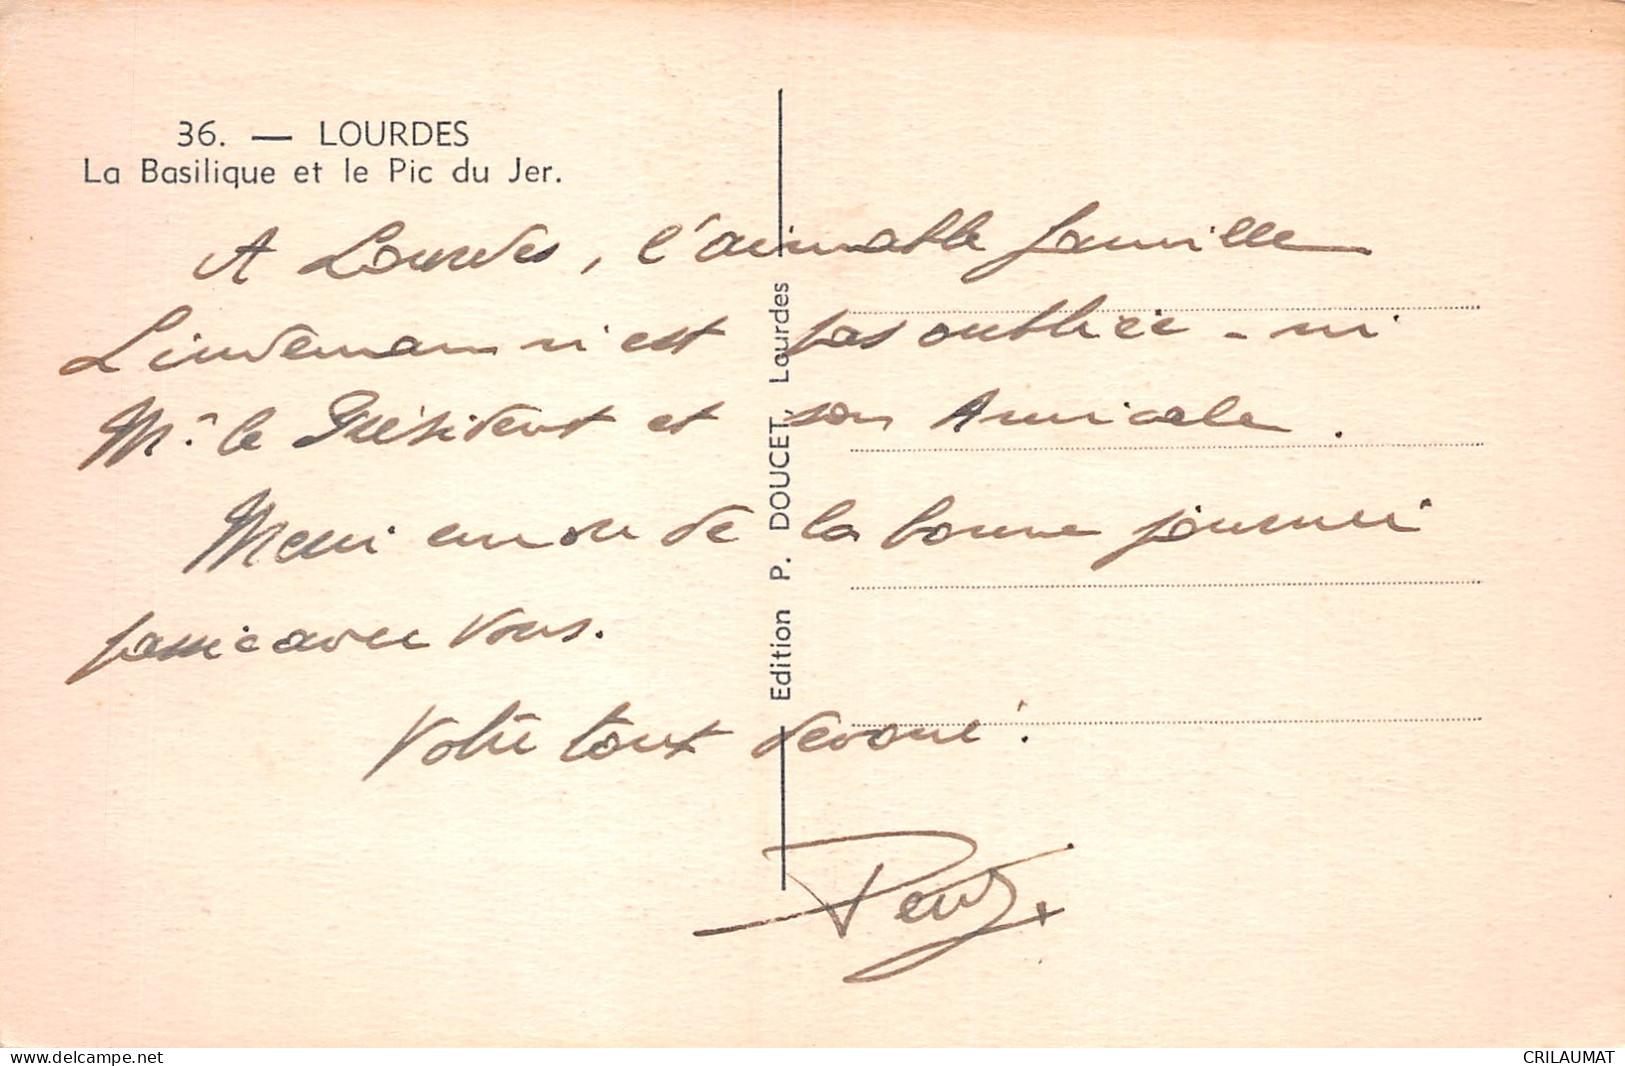 36. — LOURDES
La Basilique et le Pic du Jer.
A Lourdes, l'aimable famille
Lindemann n'est pas oubliée - ni
Mr le Président et son Amicale.
Merci encore de la bonne journée
passée avec vous.
Votre tout dévoué.
Edition P. DOUCET, Lourdes
delcampe.net
CRILAUMAT